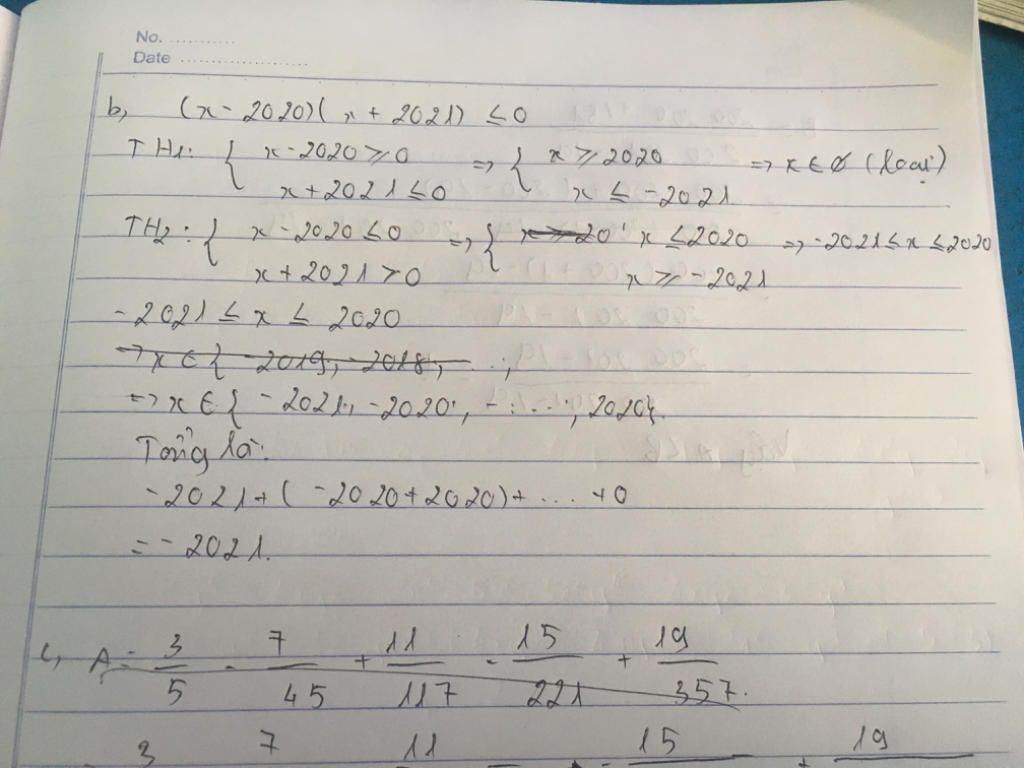 No. ...........
Date .....................
b, (x - 2020)(x + 2021) ≤ 0
TH1: { x - 2020 ≥ 0 => { x ≥ 2020 => x ∈ ∅ (loại)
x + 2021 ≤ 0 x ≤ -2021
TH2: { x - 2020 ≤ 0 => { x ≥ 20 x ≤ 2020 => -2021 ≤ x ≤ 2020
x + 2021 ≥ 0 x ≥ -2021
-2021 ≤ x ≤ 2020
=> x ∈ { -2019; -2018; ...;
=> x ∈ { -2021; -2020; ....; 2020}.
Tổng là:
-2021 + (-2020 + 2020) + ... + 0
= -2021.
c, A = 3/5 - 7/45 + 11/117 - 15/221 + 19/357.
3 7 11 15 19